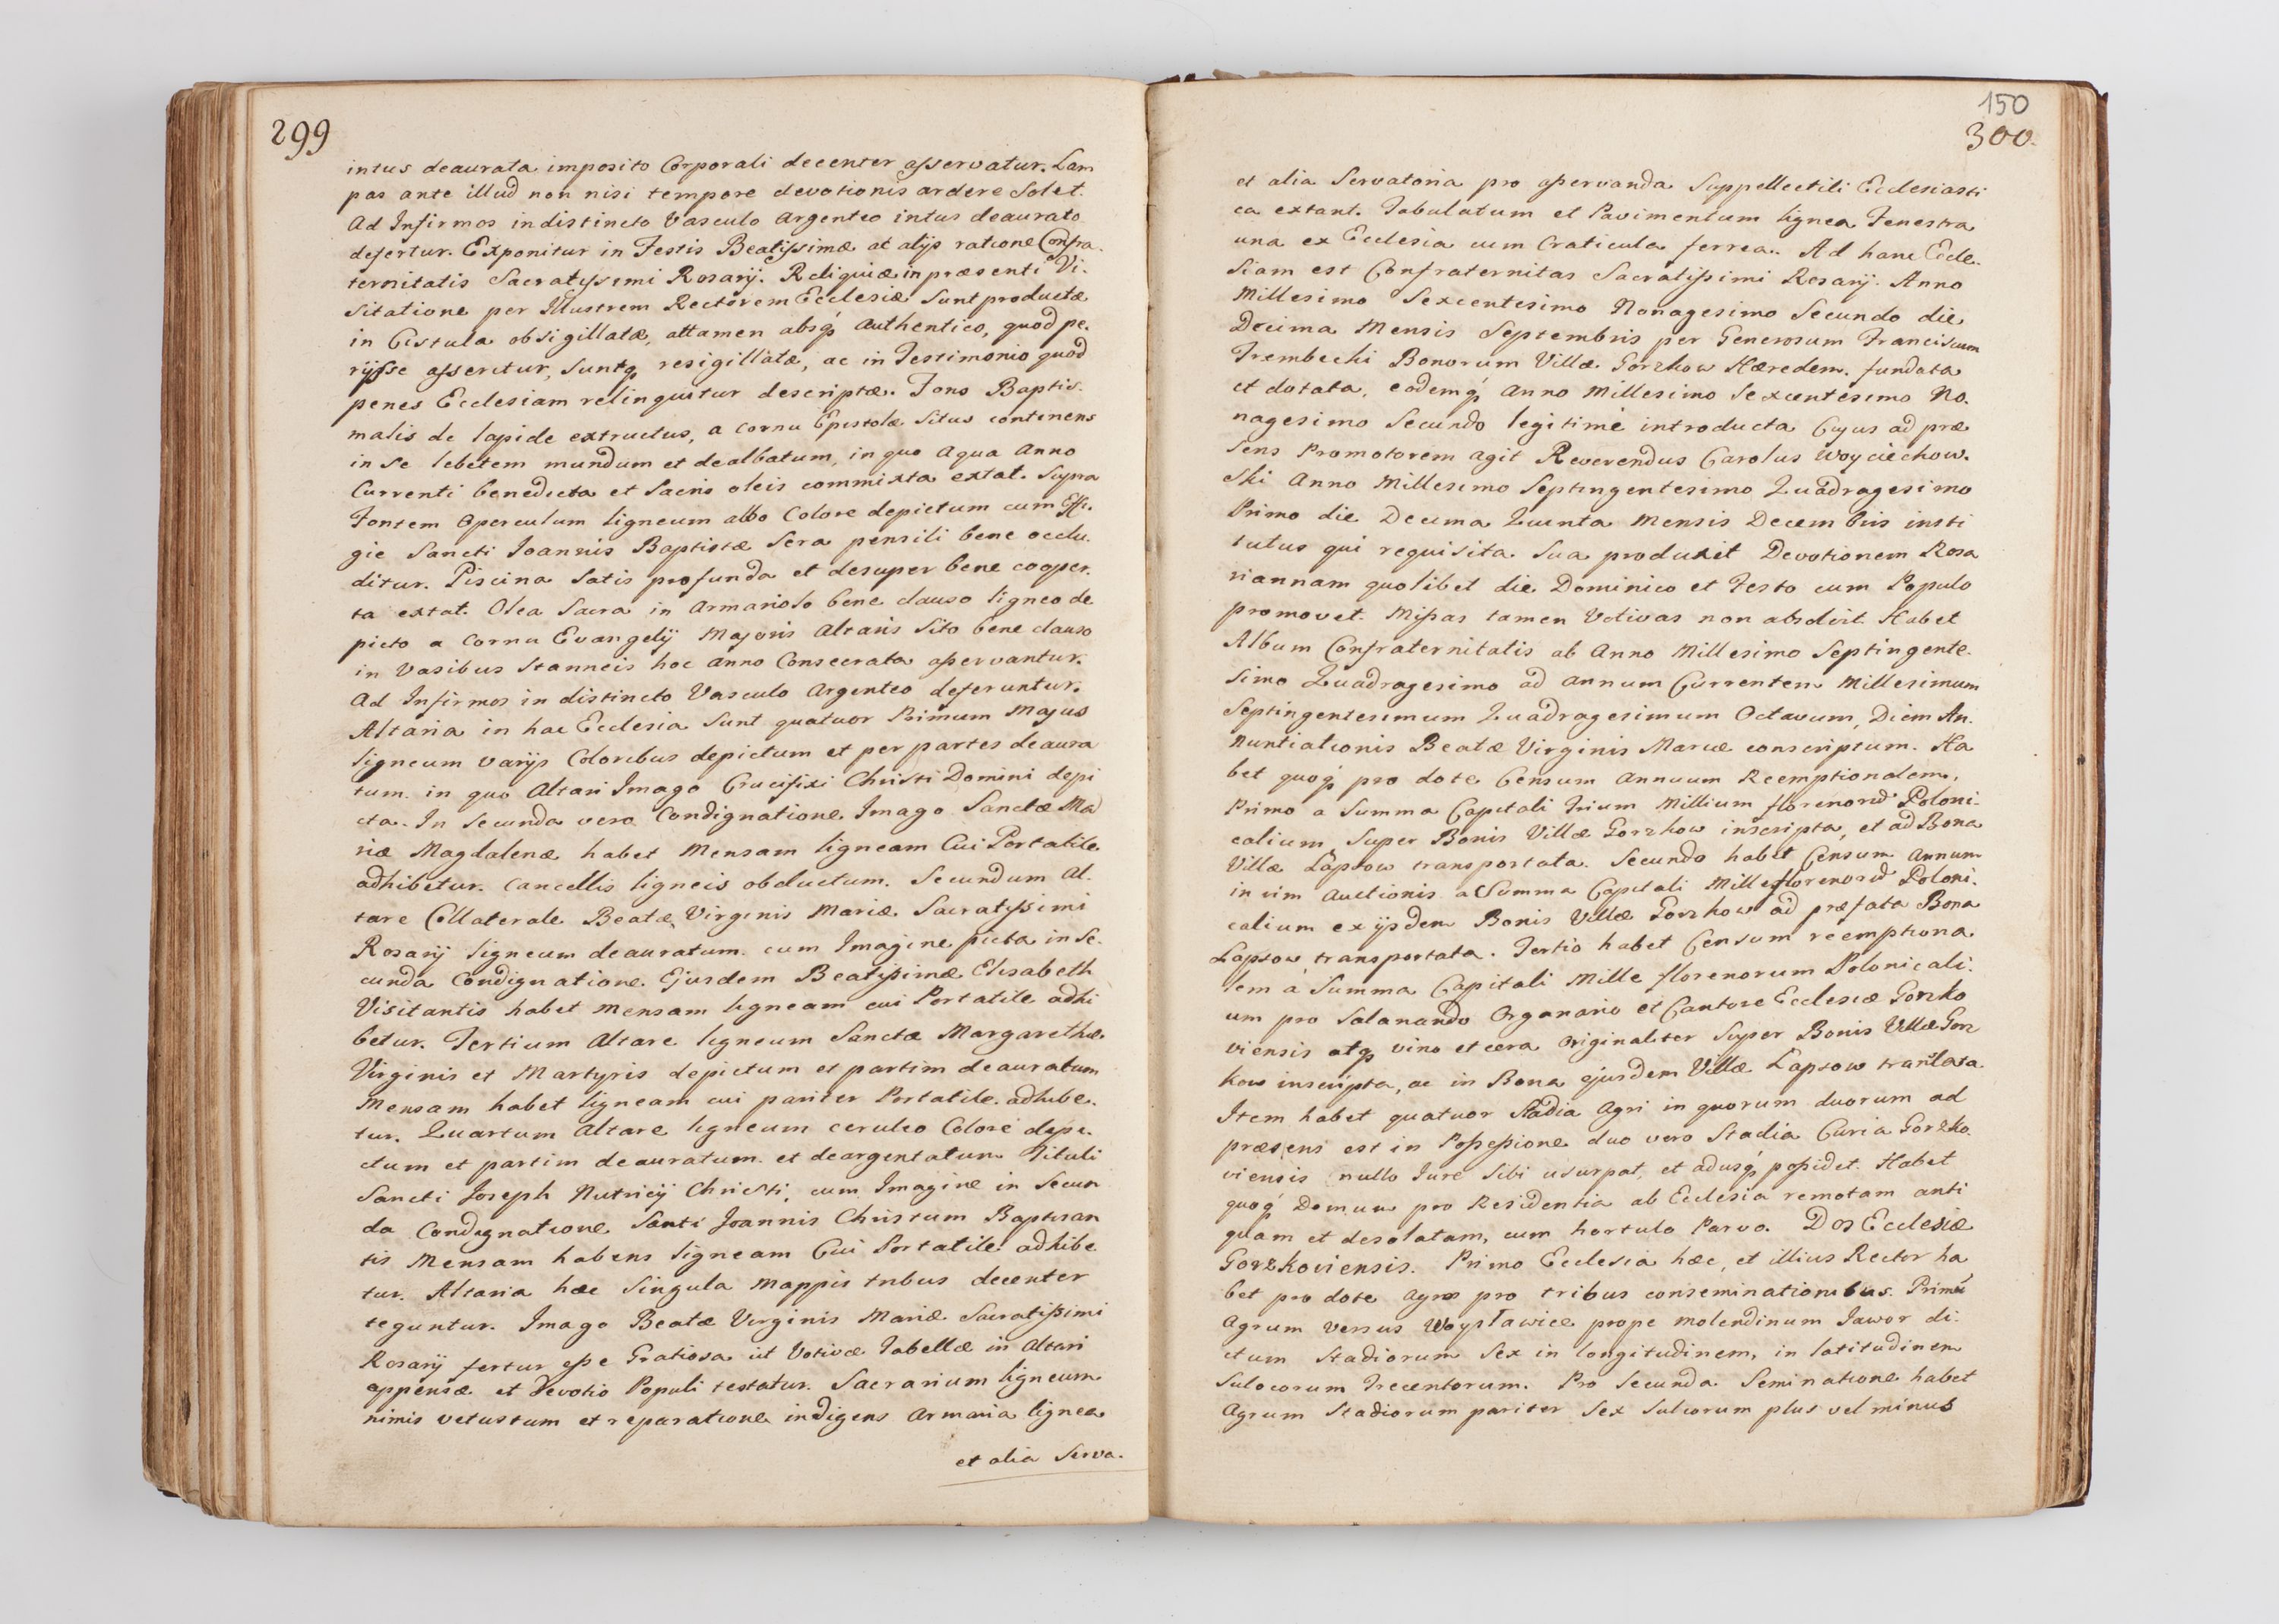 299
intus deaurata imposito Corporali decenter asservatur. Lam
pas ante illud non nisi tempore devotionis ardere Solet.
Ad Infirmos indistincto Vasculo Argenteo intus deaurato
defertur. Exponitur in Festis Beatissimæ at alijs ratione Confra.
ternitatis Sacratissimi Rosarij. Reliquiæ in præsenti Vi.
sitatione per Illustrem Rectorem Ecclesiæ Sunt productæ
in Cistula obsigillatæ, attamen absq́ Authentico, quod pe.
rijsse asseritur, Suntq́ resigillatæ, ac in Testimonio quod
penes Ecclesiam relinquitur descriptæ. Fons Baptis.
malis de lapide extructus, a Cornu Epistolæ Situs continens
in Se lebetem mundum et dealbatum, in quo Aqua Anno
Currenti benedicta et Sacris oleis commixta extat. Supra
Fontem Operculum ligneum albo Colore depictum cum Effi.
gie Sancti Joannis Baptistæ Sera pensili bene occlu.
ditur. Piscina Satis profunda et desuper bene cooper.
ta extat. Olea Sacra in Armariolo bene clauso ligneo de
picto a Cornu Evangelij Majoris Altaris Sito bene clauso
in Vasibus Stanneis hoc Anno Consecrata asservantur.
Ad Infirmos in distincto Vasculo Argenteo deferuntur.
Altaria in hac Ecclesia Sunt quatuor Primum Majus
ligneum varijs Coloribus depictum et per partes deaura
tum. in quo Altari Imago Crucifixi Christi Domini depi
cta. In Secunda vero Condignatione Imago Sanctæ Ma
riæ Magdalenæ habet Mensam ligneam Cui Portatile
adhibetur. Cancellis ligneis obductum. Secundum Al.
tare Collaterale Beatæ Virginis Mariæ Sacratissimi
Rosarij ligneum deauratum cum Imagine picta in Se.
cunda Condignatione Ejusdem Beatissimæ Elisabeth
Visitantis habet Mensam ligneam cui Portatile adhi
betur. Tertium Altare ligneum Sanctæ Margarethæ
Virginis et Martyris depictum et partim deauratum
Mensam habet ligneam cui pariter Portatile adhibe.
tur. Quartum Altare ligneum ceruleo Colore depi.
ctum et partim deauratum et deargentatum Tituli
Sancti Joseph Nutricij Christi, cum Imagine in Secun
da Condignatione Santi Joannis Christum Baptisan
tis Mensam habens ligneam Cui Portatile adhibe
tur. Altaria hæc Singula Mappis tribus decenter
teguntur. Imago Beatæ Virginis Mariæ Sacratissimi
Rosarij fertur esse Gratiosa ut Votivæ Tabellæ in Altari
appensæ et Devotio Populi testatur. Sacrarium ligneum
nimis vetustum et reparatione indigens Armaria lignea
et alia Serva.
150
300.
et alia Servatoria pro asservanda Suppellectili Ecclesiasti
ca extant. Tabulatum et Pavimentum lignea Fenestra
una ex Ecclesia cum Craticula ferrea. Ad hanc Eccle.
siam est Confraternitas Sacratissimi Rosarij. Anno
Millesimo Sexcentesimo Nonagesimo Secundo die
Decima Mensis Septembris per Generosum Franciscum
Trembecki Bonorum Villæ Gorzkow Hæredem. fundata
et dotata, eodemq́ Anno Millesimo Sexcentesimo No.
nagesimo Secundo legitimé introducta Cujus ad præ
sens Promotorem agit Reverendus Carolus Woyciechow.
ski Anno Millesimo Septingentesimo Quadragesimo
Primo die Decima Quinta Mensis Decembris insti
tutus qui requisita Sua produxit Devotionem Rosa
riannam quolibet die Dominico et Festo cum Populo
promovet. Missas tamen Votivas non absolvit. Habet
Album Confraternitatis ab Anno Millesimo Septingente.
simo Quadragesimo ad annum Currentem Millesimum
Septingentesimum Quadragesimum Octavum, Diem An.
nuntiationis Beatæ Virginis Mariæ conscriptum. Ha
bet quoq́ pro dote Censum Annuum Reemptionalem,
Primo a Summa Capitali Trium Millium florenorum Poloni.
calium Super Bonis Villæ Gorzkow inscripta, et ad Bona
Villæ Łapsow transportata. Secundo habet Censum Annum
in vim Auctionis a Summa Capitali Mille florenorum Poloni.
calium ex ijsdem Bonis Villæ Gorzkow ad præfata Bona
Łapsow transportata. Tertio habet Censum reemptiona
lem a Summa Capitali Mille florenorum Polonicali.
um pro Salariando Organario et Cantore Ecclesiæ Gorzko
viensis atq́ vino et cera Originaliter Super Bonis Villæ Gorz
kow inscripta, ac in Bona ejusdem Villæ Łapsow translata.
Item habet quatuor Stadia Agri in quorum duorum ad
præsens est in Possessione duo vero Stadia Curia Gorzko.
viensis nullo Jure Sibi usurpat, et adusq́ possidet. Habet
quoq́ Domum pro Residentia ab Ecclesia remotam anti
quam et desolatam, cum hortulo Parvo. Dos Ecclesiæ
Gorzkoviensis. Primo Ecclesia hæc, et illius Rector ha
bet pro dote Agros pro tribus conseminationibus. Primū
Agrum versus Woysławice prope molendinum Jawor di.
ctum Stadiorum Sex in longitudinem, in latitudinem
Sulcorum Trecentorum. Pro Secunda Seminatione habet
Agrum Stadiorum pariter Sex Sulcorum plus vel minus